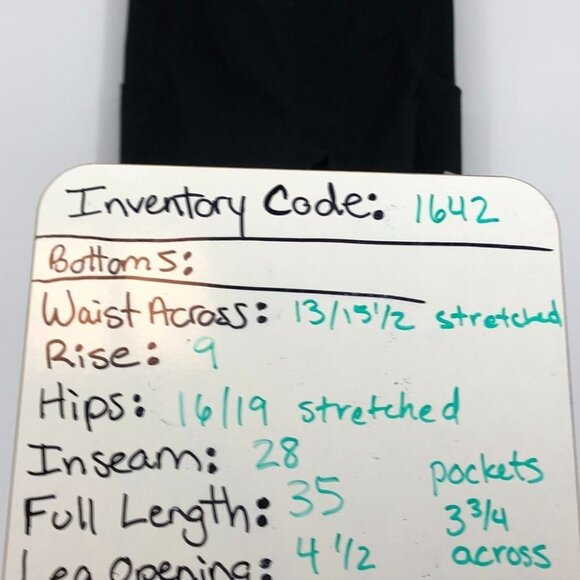 Inventory Code: 1642
Bottoms:
Waist Across: 13/15 1/2 stretched
Rise: 9
Hips: 16/19 stretched
Inseam: 28
Full Length: 35
Leg Opening: 4 1/2
pockets
3 3/4
across